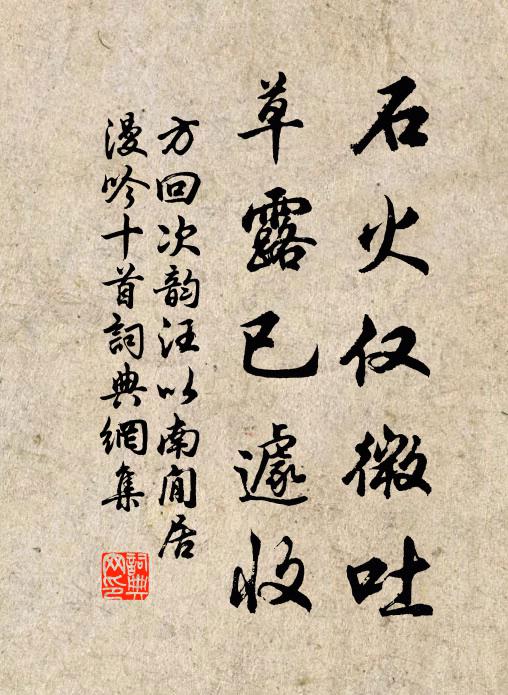 石火仅微吐
草露已遽收
方回次韵汪以南閒居
漫吟十首詞典網集
詞典网印